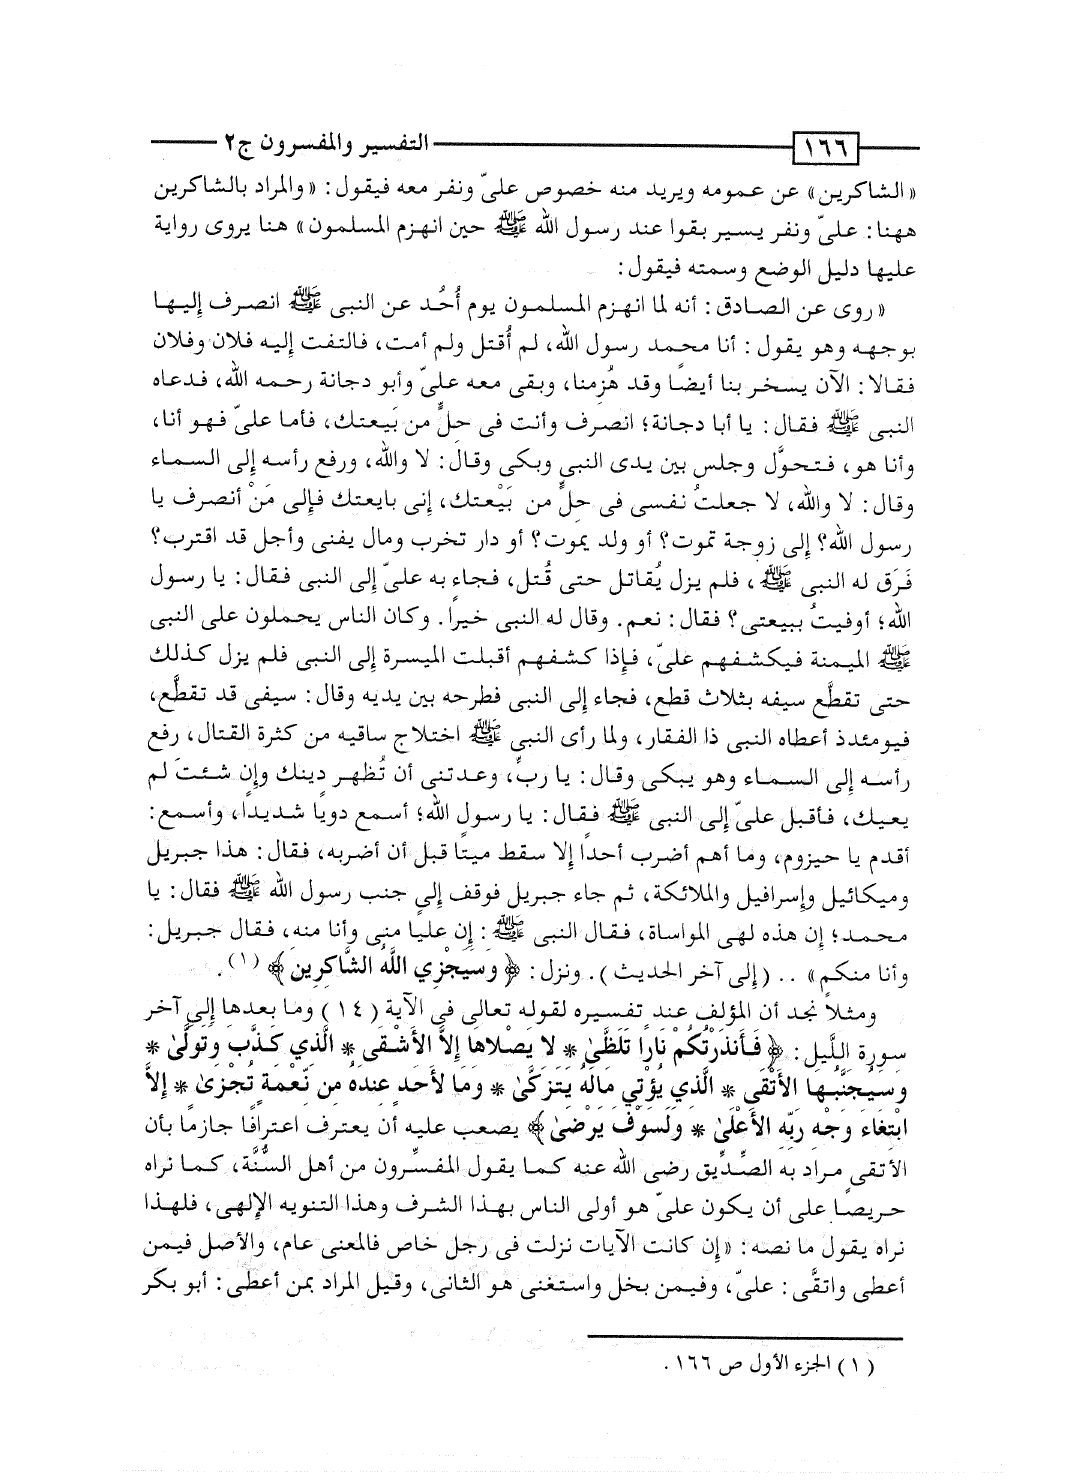 ١٦٦ التفسير والمفسرون ج٢
«الشاكرين» عن عمومه ويريد منه خصوص علىّ ونفر معه فيقول: «والمراد بالشاكرين
ههنا: علىّ ونفر يسير بقوا عند رسول الله ﷺ حين انهزم المسلمون» هنا يروى رواية
عليها دليل الوضع وسمته فيقول:
«روى عن الصادق: أنه لما انهزم المسلمون يوم أُحُد عن النبى ﷺ انصرف إليها
بوجهه وهو يقول: أنا محمد رسول الله، لم أُقتل ولم أمت، فالتفت إليه فلان وفلان
فقالا: الآن يسخر بنا أيضًا وقد هُزمنا، وبقى معه علىّ وأبو دجانة رحمه الله، فدعاه
النبى ﷺ فقال: يا أبا دجانة؛ انصرف وأنت فى حلٍّ من بَيعتك، فأما علىّ فهو أنا،
وأنا هو، فتحوَّل وجلس بين يدى النبى وبكى وقال: لا والله، ورفع رأسه إلى السماء
وقال: لا والله، لا جعلتُ نفسى فى حلٍّ من بَيْعتك، إنى بايعتك فإلى مَنْ أنصرف يا
رسول الله؟ إلى زوجة تموت؟ أو ولد يموت؟ أو دار تخرب ومال يفنى وأجل قد اقترب؟
فَرَق له النبى ﷺ، فلم يزل يُقاتل حتى قُتل، فجاء به علىّ إلى النبى فقال: يا رسول
الله؛ أوفيتُ ببيعتى؟ فقال: نعم. وقال له النبى خيرًا. وكان الناس يحملون على النبى
ﷺ الميمنة فيكشفهم علىّ، فإذا كشفهم أقبلت الميسرة إلى النبى فلم يزل كذلك
حتى تقطَّع سيفه بثلاث قطع، فجاء إلى النبى فطرحه بين يديه وقال: سيفى قد تقطَّع،
فيومئذ أعطاه النبى ذا الفقار، ولما رأى النبى ﷺ اختلاج ساقيه من كثرة القتال، رفع
رأسه إلى السماء وهو يبكى وقال: يا ربِّ، وعدتنى أن تُظهر دينك وإن شئتَ لم
يعيك، فأقبل علىّ إلى النبى ﷺ فقال: يا رسول الله؛ أسمع دويًا شديدًا، وأسمع:
أقدم يا حيزوم، وما أهم أضرب أحدًا إلا سقط ميتًا قبل أن أضربه، فقال: هذا جبريل
وميكائيل وإسرافيل والملائكة، ثم جاء جبريل فوقف إلى جنب رسول الله ﷺ فقال: يا
محمد؛ إن هذه لهى المواساة، فقال النبى ﷺ: إن عليا منى وأنا منه، فقال جبريل:
وأنا منكم» .. (إلى آخر الحديث). ونزل: ﴿وَسَيَجْزِي اللَّهُ الشَّاكِرِينَ﴾ (١).
ومثلاً نجد أن المؤلف عند تفسيره لقوله تعالى فى الآية (١٤) وما بعدها إلى آخر
سورة اللَّيل: ﴿فَأَنذَرْتُكُمْ نَارًا تَلَظَّىٰ * لا يَصْلاهَا إِلاَّ الأَشْقَى * الَّذِي كَذَّبَ وَتَوَلَّىٰ *
وَسَيُجَنَّبُهَا الأَتْقَى * الَّذِي يُؤْتِي مَالَهُ يَتَزَكَّىٰ * وَمَا لأَحَدٍ عِندَهُ مِن نِّعْمَةٍ تُجْزَىٰ * إِلاَّ
ابْتِغَاءَ وَجْهِ رَبِّهِ الأَعْلَىٰ * وَلَسَوْفَ يَرْضَىٰ﴾ يصعب عليه أن يعترف اعترافًا جازمًا بأن
الأتقى مراد به الصِّدِّيق رضى الله عنه كما يقول المفسِّرون من أهل السُّنَّة، كما نراه
حريصًا على أن يكون علىّ هو أولى الناس بهذا الشرف وهذا التنويه الإلهى، فلهذا
نراه يقول ما نصه: «إن كانت الآيات نزلت فى رجل خاص فالمعنى عام، والأصل فيمن
أعطى واتقَّى: علىّ، وفيمن بخل واستغنى هو الثانى، وقيل المراد بمن أعطى: أبو بكر
(١) الجزء الأول ص ١٦٦.